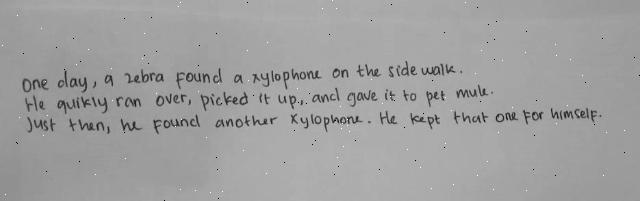 One day, a zebra found a xylophone on the side walk.
He quikly ran over, picked it up., and gave it to pet mule.
Just then, he found another xylophone. He kept that one for himself.